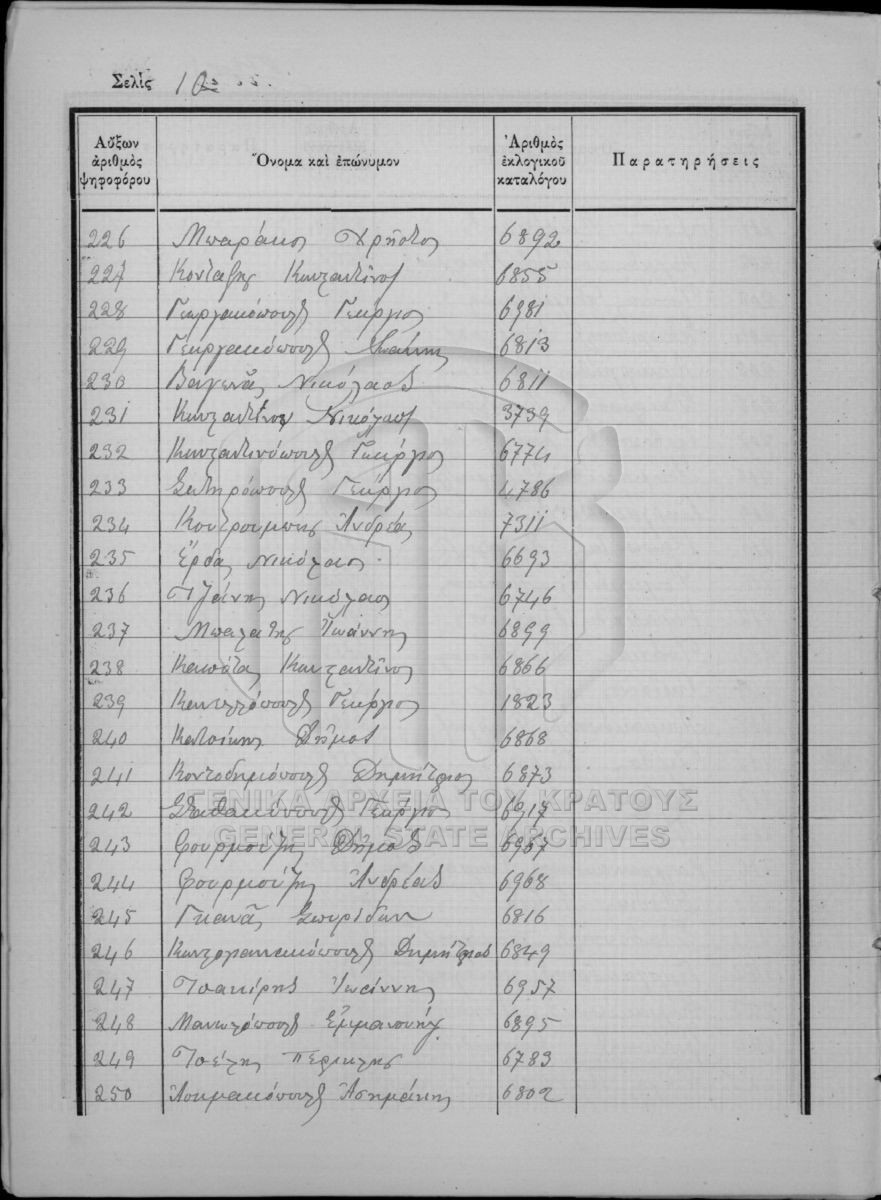 Σελὶς 10
Αὔξων ἀριθμὸς ψηφοφόρου
Ὄνομα καὶ ἐπώνυμον
Ἀριθμὸς ἐκλογικοῦ καταλόγου
Παρατηρήσεις
226 Μπαράκος Χρῆστος 6892
227 Κονταξῆς Κωνσταντῖνος 6855
228 Γεωργακόπουλος Γεώργιος 6981
229 Γεωργακόπουλος Ἰωάννης 6813
230 Βαγενᾶς Νικόλαος 6811
231 Κωνσταντίνου Νικόλαος 3739
232 Κωνσταντινόπουλος Γεώργιος 6774
233 Σωτηρόπουλος Γεώργιος 4786
234 Κουτρουμπῆς Ἀνδρέας 7311
235 Νικόλαος 6693
236 Τζάνης Νικόλαος 6746
237 Ἰωάννης 6899
238 Καπότας Κωνσταντῖνος 6866
239 Γεώργιος 1823
240 Κατσίκης Δῆμος 6868
241 Κοντοδημόπουλος Δημήτριος 6873
242 Σταθακόπουλος Γεώργιος 6917
243 Φουρμούζης Δῆμος 6967
244 Φουρμούζης Ἀνδρέας 6968
245 Γκανᾶς Σπυρίδων 6816
246 Δημήτριος 6849
247 Τσακίρης Ἰωάννης 6957
248 Μανωλόπουλος Ἐμμανουὴλ 6895
249 Τσέλης Περικλῆς 6783
250 Ἀσημακόπουλος Ἀσημάκης 6802
ΓΕΝΙΚΑ ΑΡΧΕΙΑ ΤΟΥ ΚΡΑΤΟΥΣ
GENERAL STATE ARCHIVES